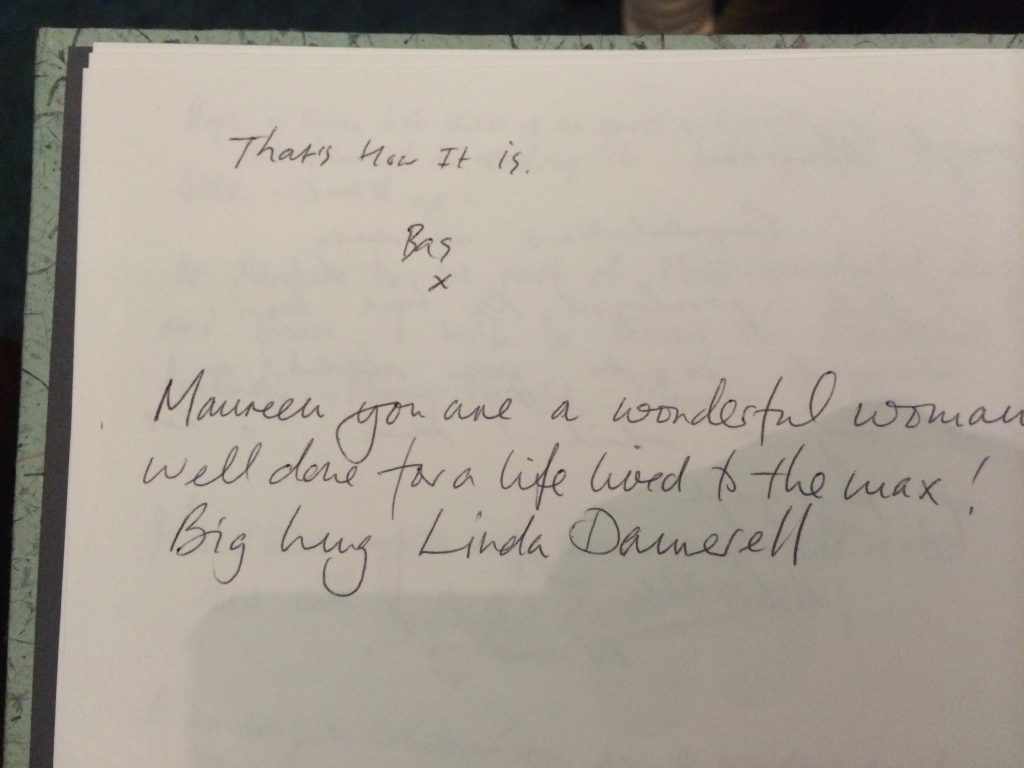 That's How It is.
Bas
x
Maureen you are a wonderful woman
well done for a life lived to the max!
Big hug Linda Damerell